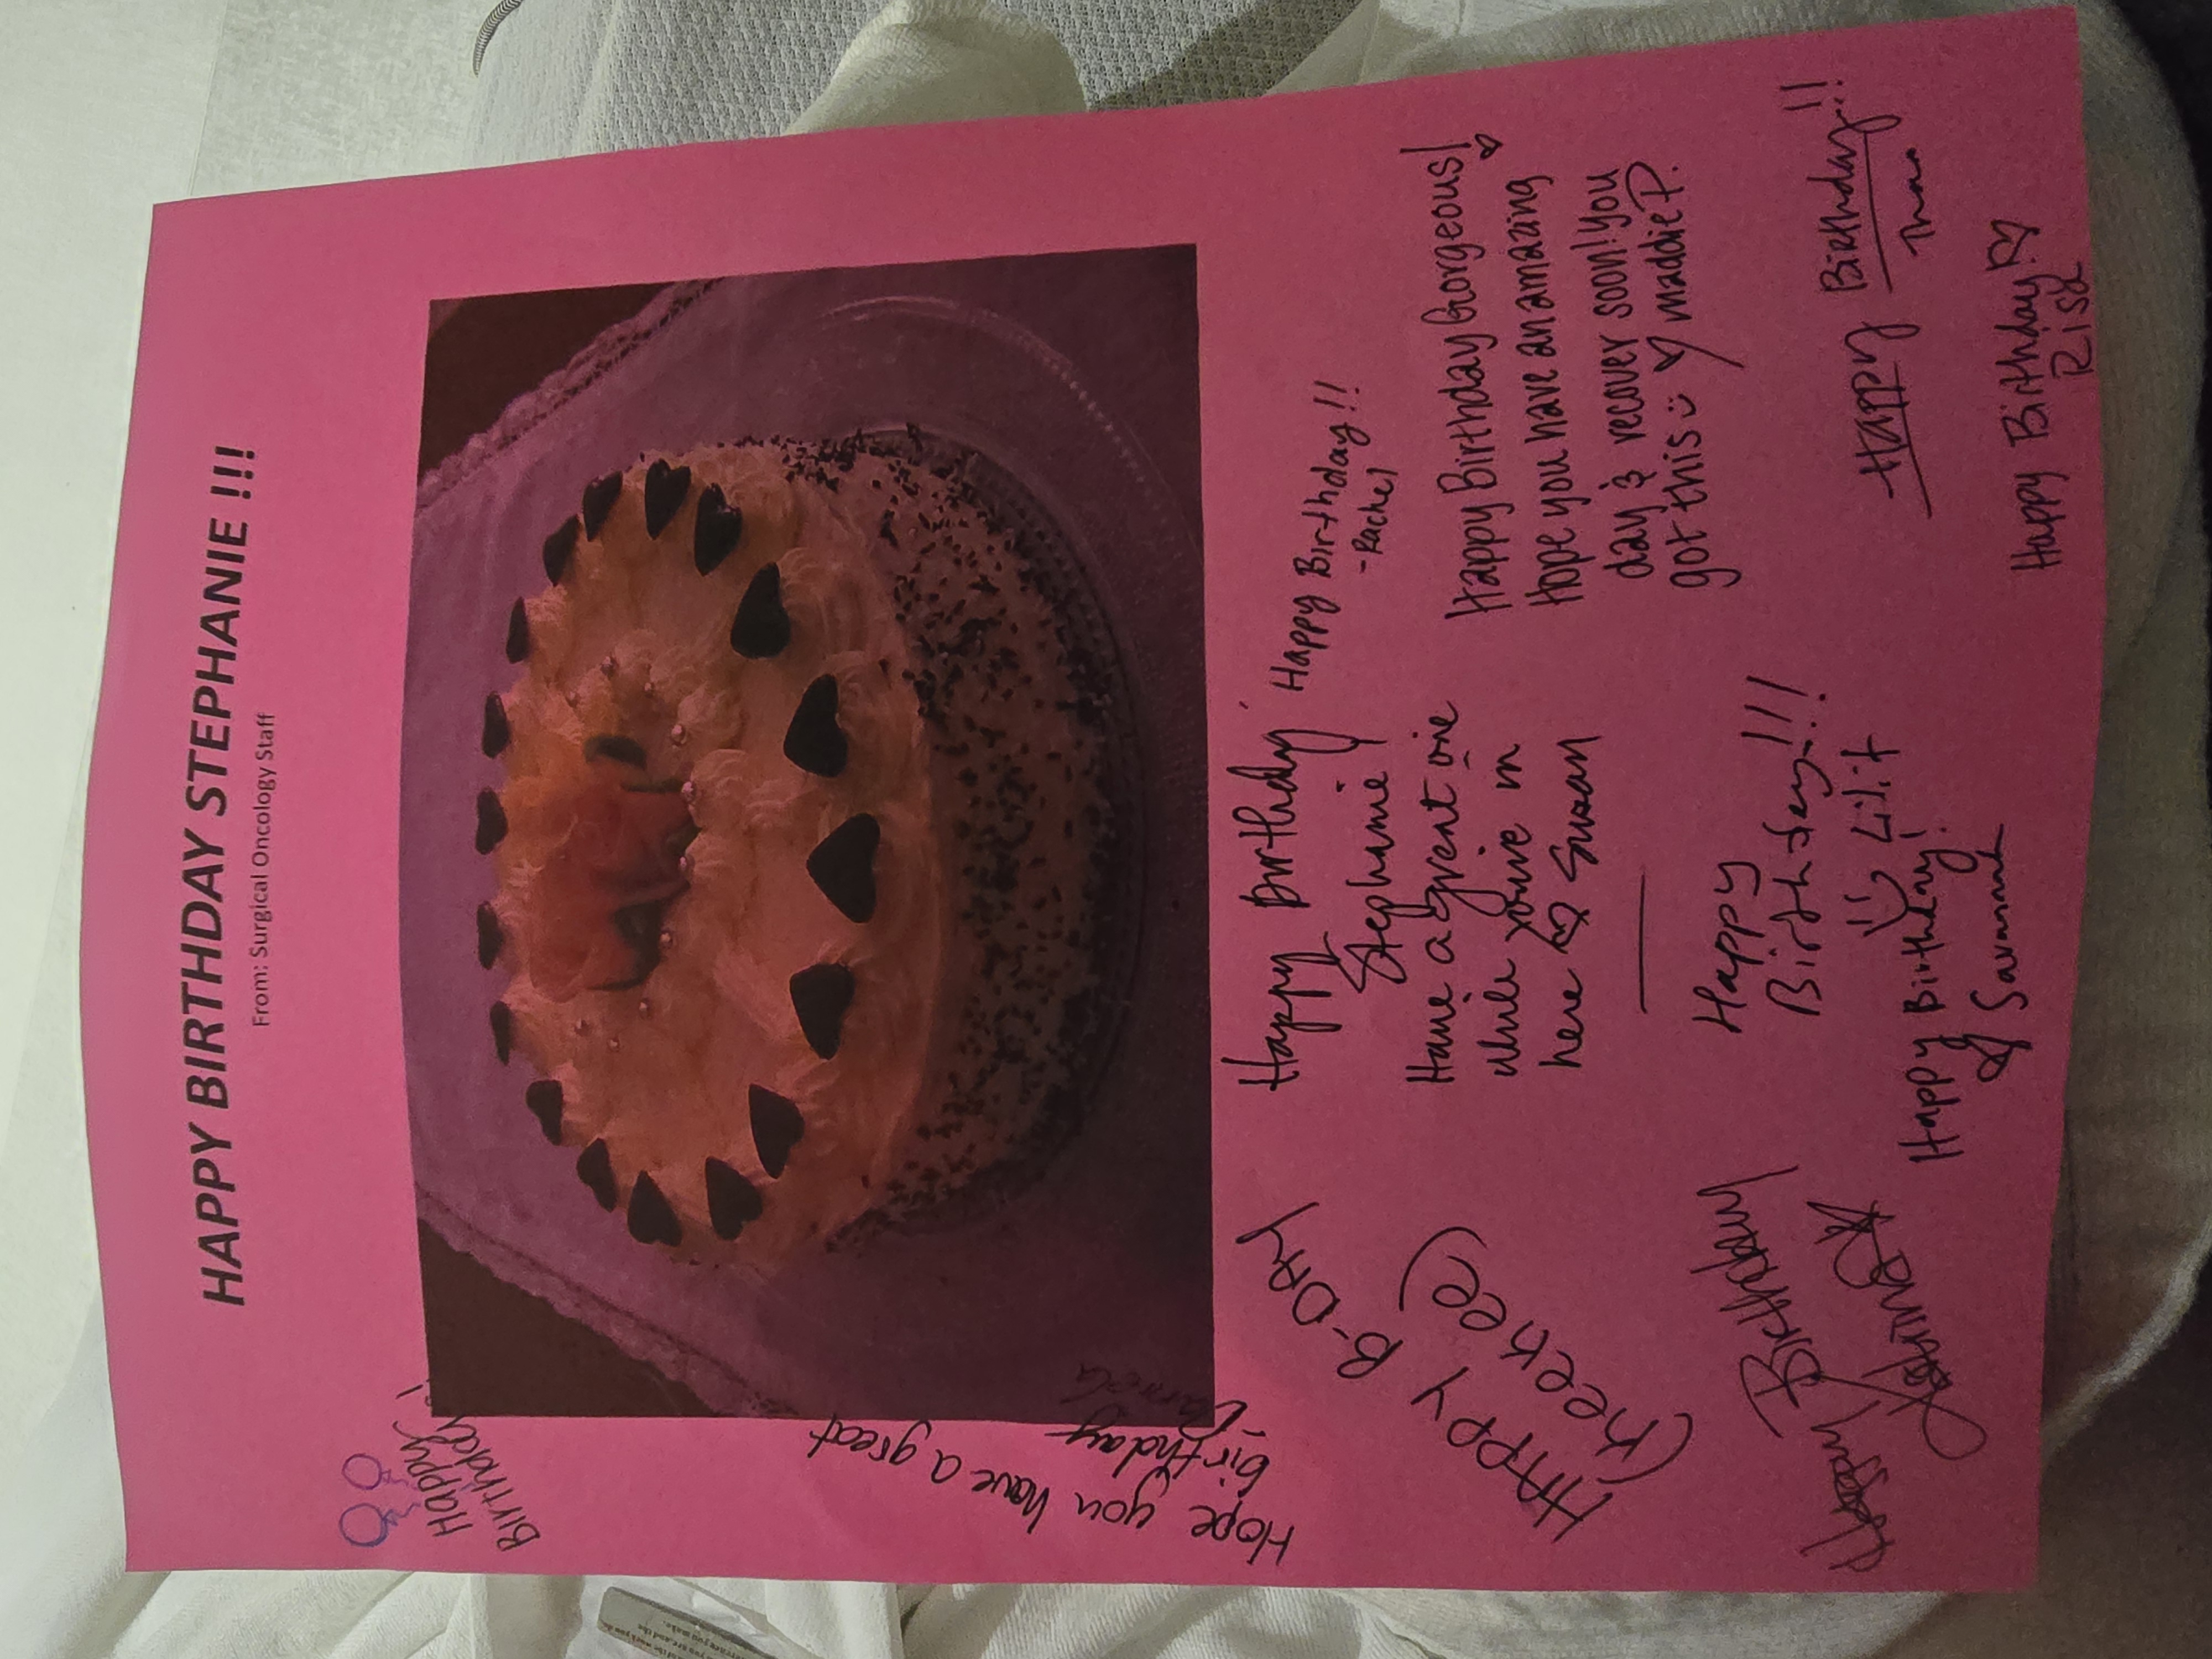 HAPPY BIRTHDAY STEPHANIE !!!
From: Surgical Oncology Staff
Happy
Birthday!
Hope you have a great
birthday
HAPPY B-DAY
(Keenee)
Happy Birthday
Stephanie!
Have a great one
while you're in
here Susan
Happy Birthday!!
-Rachel
Happy Birthday Gorgeous!
Hope you have an amazing
day & recover soon! You
got this :) maddie P.
Happy Birthday
Happy
Birthday!!!
Lilit
Happy Birthday!
Savannah
Happy Birthday!!
Happy Birthday!